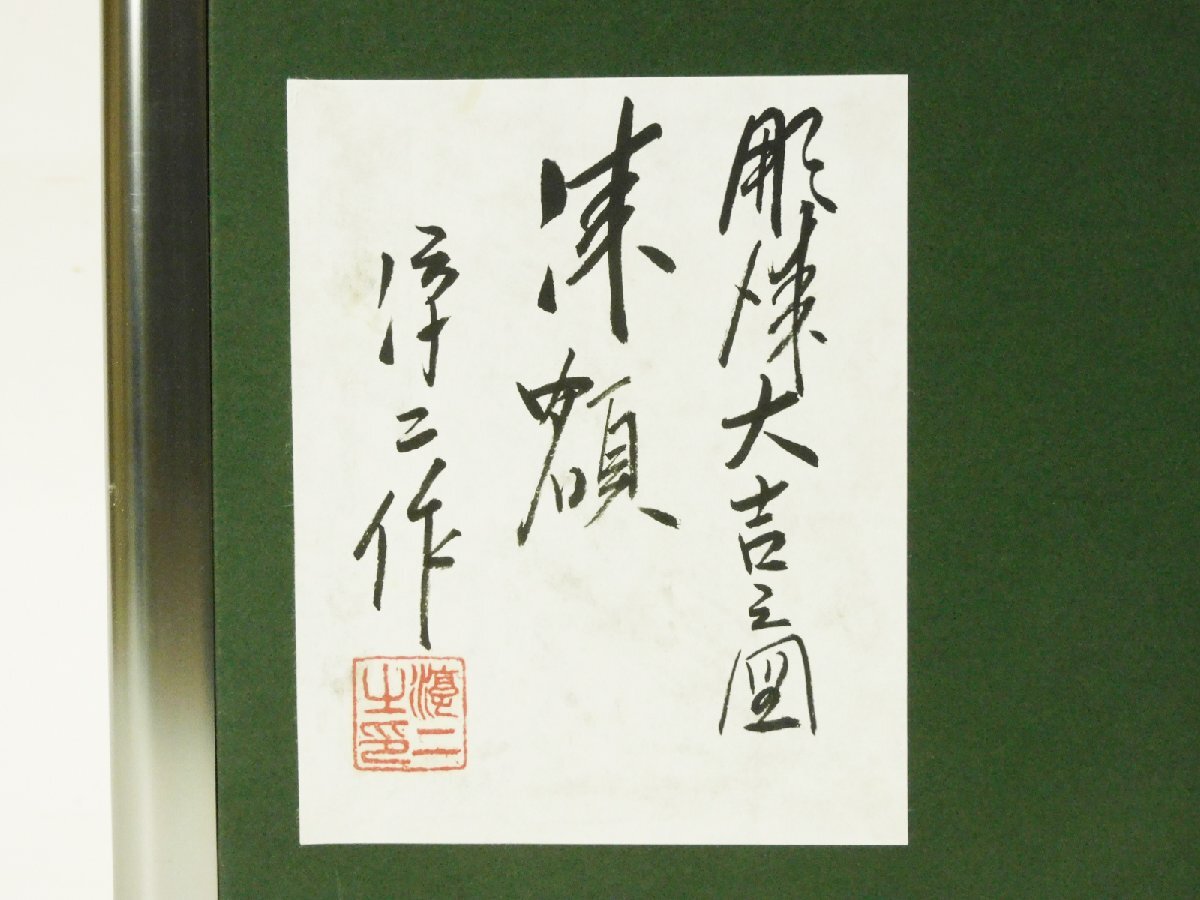 彫漆大吉之図
漆額
淳二作
淳二
之印